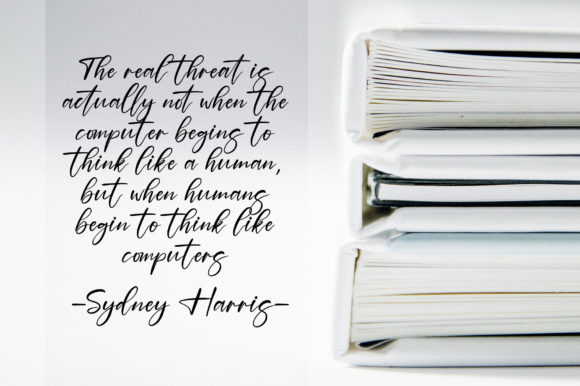 The real threat is
actually not when the
computer begins to
think like a human,
but when humans
begin to think like
computers
-Sydney Harris-